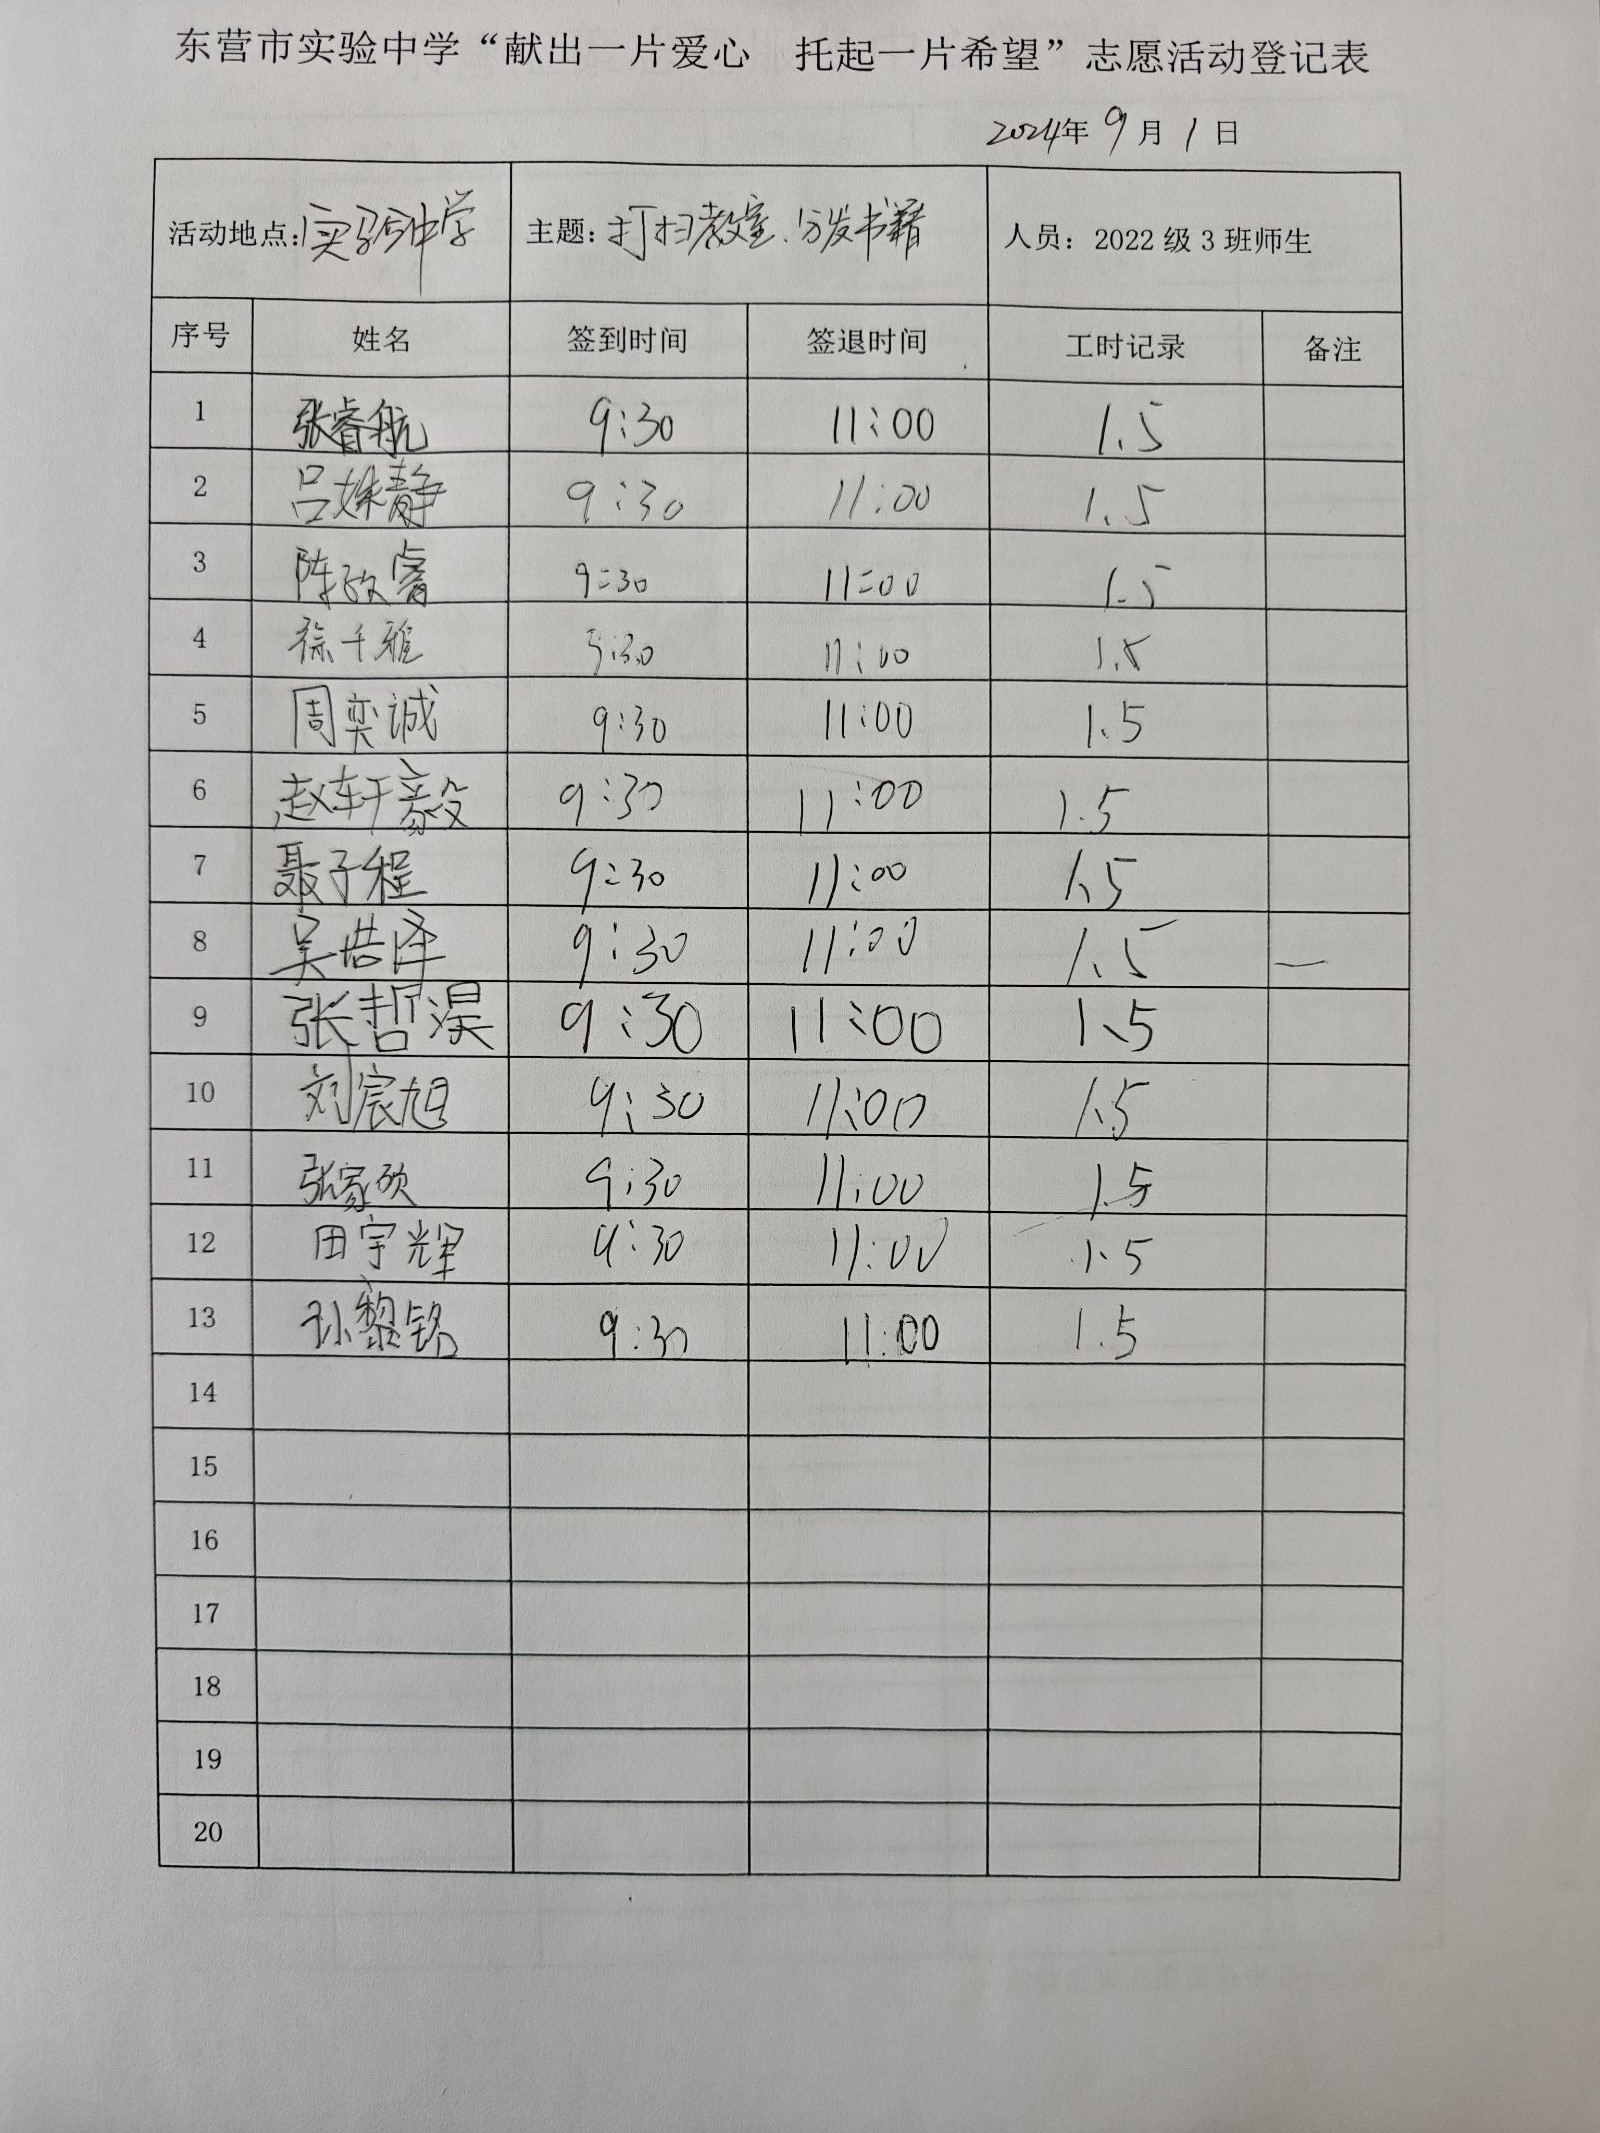 东营市实验中学“献出一片爱心 托起一片希望”志愿活动登记表
2024年 9月 1日
活动地点：实验中学 主题：打扫教室、分发书籍 人员：2022级3班师生
序号 姓名 签到时间 签退时间 工时记录 备注
1 张睿航 9:30 11:00 1.5
2 吕姝静 9:30 11:00 1.5
3 陈政睿 9:30 11:00 1.5
4 徐千雅 9:30 11:00 1.5
5 周奕诚 9:30 11:00 1.5
6 赵轩毅 9:30 11:00 1.5
7 聂子程 9:30 11:00 1.5
8 吴浩泽 9:30 11:00 1.5 —
9 张哲淏 9:30 11:00 1.5
10 刘宸旭 9:30 11:00 1.5
11 张家硕 9:30 11:00 1.5
12 田宇辉 9:30 11:00 1.5
13 孙黎铭 9:30 11:00 1.5
14
15
16
17
18
19
20